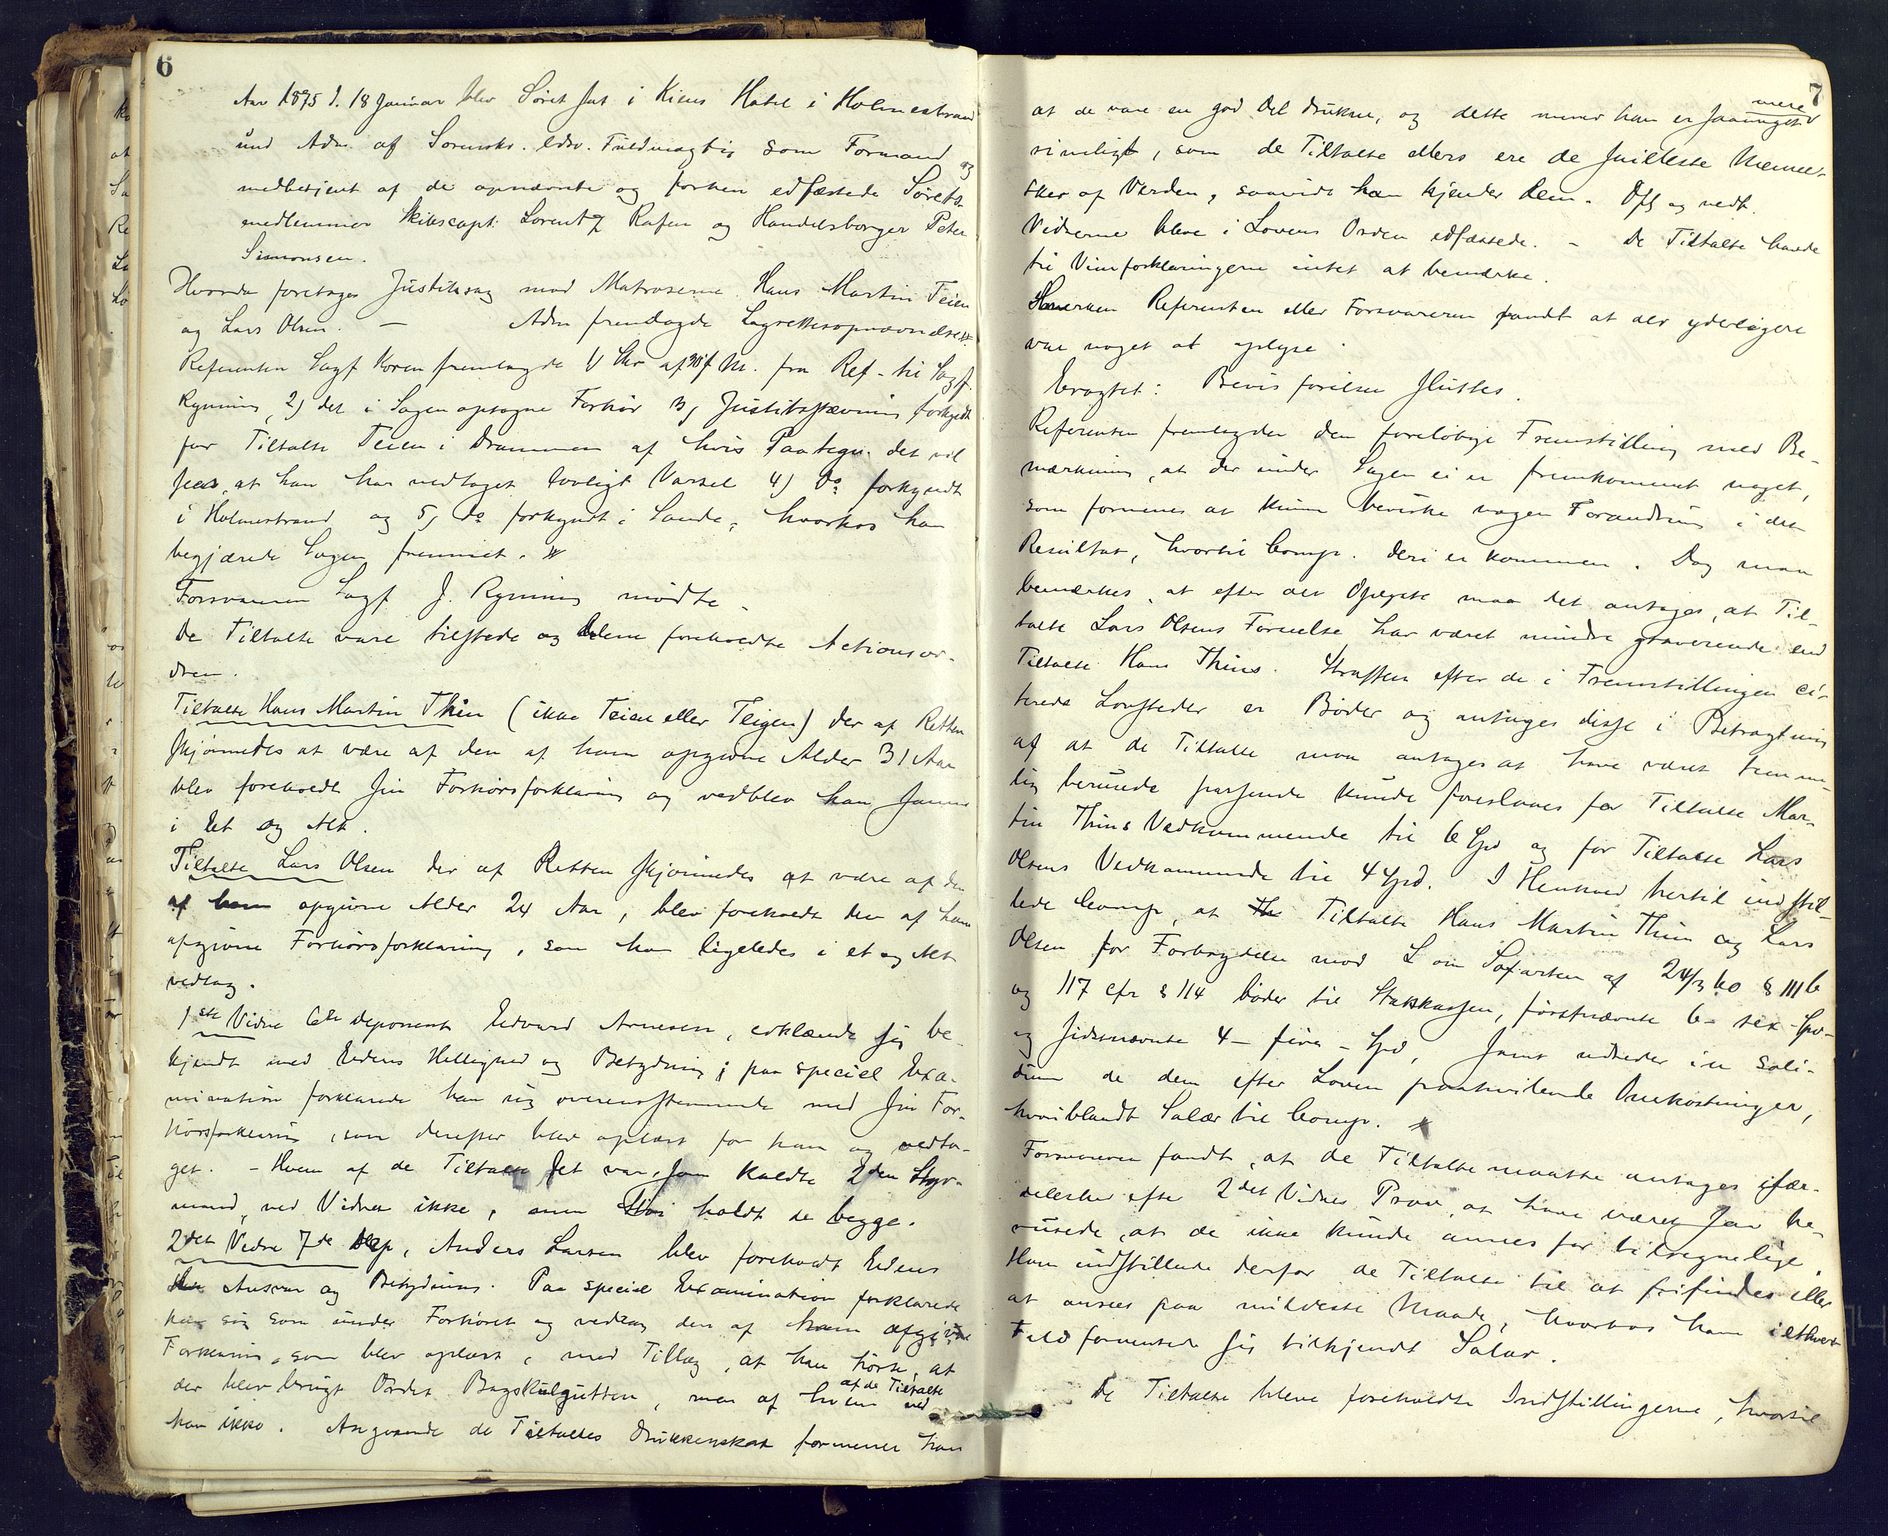 6
Aar 1875 d. 18 Januar blev Søret sat i Kiens Hotel i Holmestrand
und Adm. af Sorensk. edsv. Fuldmægtig som Formand og
medbetjent af de opnævnte og forhen edfæstede Sørets-
medlemmer Skibscapt. Lorentz Rafen og Handelsborger Peter
Simonsen.
Hvorda foretoges Justitssag mod Matroserne Hans Martin Teien
og Lars Olsen. — Adm fremlagde Lagrettesopnævnelse.
Referenten Sagf Koren fremlagde 1 Skr af f. M. fra Ref. til Sagf.
Rynning, 2) det i Sagen optagne Forhør 3) Justitsstævning forkyndt
for Tiltalte Teien i Drammen af hvis Paategn. det vil
sees, at han har vedtaget lovligt Varsel 4) Do forkyndt
i Holmestrand og 5) do forkyndt i Sande, hvorhos han
begjærede Sagen fremmet.
Forsvareren Sagf J. Rynning mødte.
De Tiltalte vare tilstede og blew foreholdte Actionsor-
dren.
Tiltalte Hans Martin Thin (ikke Teien eller Teigen) der af Retten
skjønnedes at være af den af ham opgivne Alder 31 Aar
blev foreholdt sin Forhørsforklaring og vedblev han samme
i Et og Alt.
Tiltalte Lars Olsen der af Retten skjønnedes at være af den
af ham opgivne Alder 24 Aar, blev foreholdt den af ham
afgivne Forhørsforklaring, som han ligeledes i et og Alt
vedtog.
1ste Vidne 6te Deponent Edvard Arnesen, erklærede sig be-
kjendt med Edens Hellighed og Betydning; paa speciel Exa-
mination forklarede han sig overensstemmende med sin For-
hørsforklaring, som derefter blev oplæst for ham og vedta-
get. – Hvem af de Tiltalte det var, som kaldte 2den Styr-
mand, ved Vidnet ikke, men Støi holdt de begge.
2det Vidne 7de Dep, Anders Larsen blev foreholdt Edens
Ansvar og Betydning. Paa speciel Examination forklarede
han sig som under Forhøret og vedtog den af ham afgivne
Forklaring, som blev oplæst, med Tillæg, at han hørte, at
der blev brugt Ordet Bagskulgutten, men af hvem af de Tiltalte ved
han ikke. Angaaende de Tiltaltes Drukkenskab formener han
7
at de vare en god Del drukne, og dette mener han er saameget mere
rimeligt, som de Tiltalte ellers ere de snilleste Mennes-
sker af Verden, saavidt han kjender dem. Opl. og vedt.
Vidnerne bleve i Lovens Orden edfæstede. – De Tiltalte havde
til Vidneforklaringerne intet at bemærke.
Hverken Referenten eller Forsvareren fandt at der yderligere
var noget at oplyse.
Eragtet: Bevisførelsen sluttes.
Referenten fremlagde den foreløbige Fremstilling med Be-
mærkning, at der under Sagen ei er fremkommet noget,
som formenes at kunne bevirke nogen Forandring i det
Resultat, hvortil Comp. deri er kommen. Dog maa
bemærkes, at efter det Oplyste maa det antages, at Til-
talte Lars Olsens Forseelse har været mindre graverende end
Tiltalte Hans Thins. Straffen efter de i Fremstillingen ci-
terede Lovsteder er Bøder og antages disse i Betragtning
af at de Tiltalte maa antages at have været temme-
lig berusede passende kunde foreslaaes for Tiltalte Mar-
tin Thins Vedkommende til 6 Spd og for Tiltalte Lars
Olsens Vedkommende til 4 Spd. I Henhold hertil indstil-
lede Comp, at Tiltalte Hans Martin Thin og Lars
Olsen for Forbrydelse mod L om Søfarten af 24/3 60 § 111 b
og 117 cfr § 114 bøder til Statskassen, førstnævnte 6 – sex – Spd
og sidstnævnte 4 – fire – Spd, samt udreder in soli-
dum de dem efter Loven paahvilende Omkostninger,
hvoriblandt Salær til Comp.
Forsvareren fandt, at de Tiltalte maatte antages især-
deleshed efter 2det Vidnes Prov, at have været saa be-
rusede, at de ikke kunde ansees for tilregnelige.
Han indstillede derfor de Tiltalte til at frifindes eller
at ansees paa mildeste Maade, hvorhos han i ethvert
Fald formentede sig tilkjendt Salær.
De Tiltalte bleve foreholdte Indstillingerne, hvortil